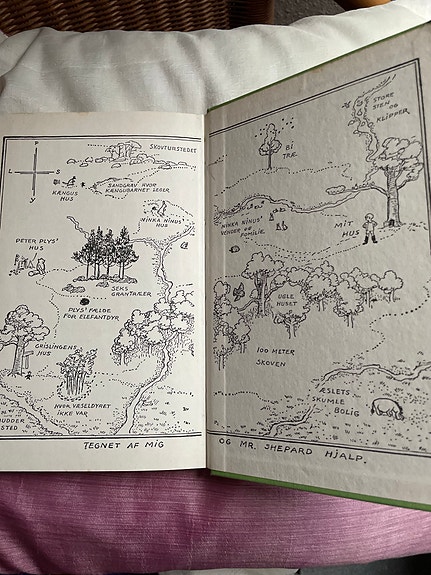 P
L
S
Y
SKOVTURSTEDET
KÆNGUS
HUS
SANDGRAV HVOR
KÆNGUBARNET LEGER
NINKA NINUS'
HUS
PETER PLYS'
HUS
SEKS
GRANTRÆER
PLYS' FÆLDE
FOR ELEFANTDYR
GRISLINGENS
HUS
HVOR VÆSELDYRET
IKKE VAR
MUDDER
STED
TEGNET AF MIG
STORE
STEN OG
KLIPPER
BI
TRÆ
NINKA NINUS'
VENDER OG
FAMILIE
MIT
HUS
UGLE
HUSET
100 METER
SKOVEN
ÆSLETS
SKUMLE
BOLIG
OG MR. SHEPARD HJALP.